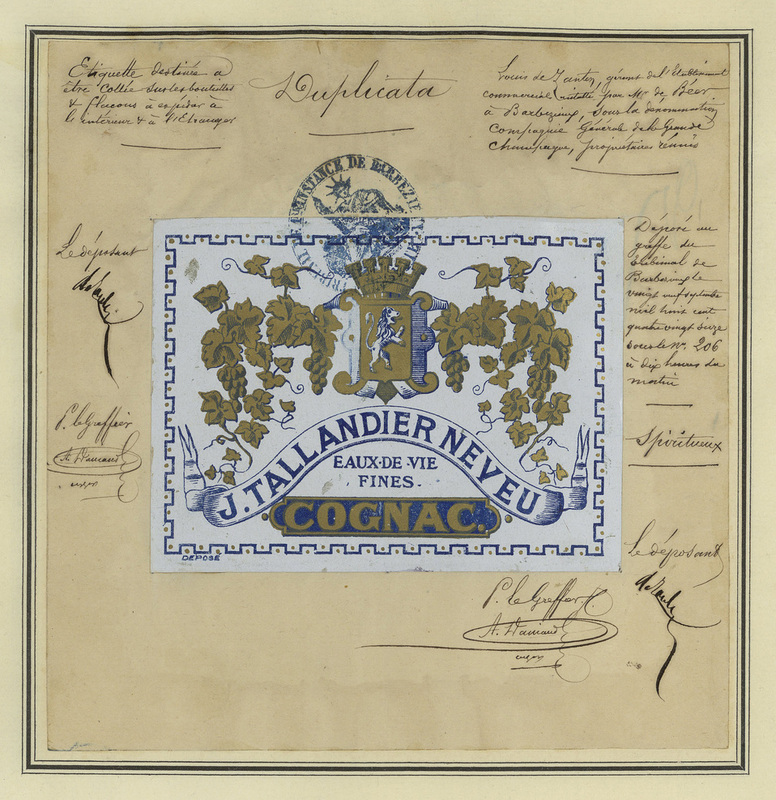 Etiquette destinée à
être collée sur les bouteilles
& flacons à expédier à
l'intérieur & à l'Etranger
Duplicata
Louis de Zantey, gérant de l'Etablissement
commercial installé par Mr de Béor
à Barbezieux, sous la dénomination
Compagnie Générale de la Grande
Champagne, propriétaires réunis
INSTANCE DE BARBEZIE
TRI
Le déposant
P. le Greffier
A. Damaud
J. TALLANDIER NEVEU
EAUX-DE-VIE
FINES.
COGNAC.
DEPOSÉ
Déposé au
greffe du
tribunal de
Barbezieux le
vingt neuf septembre
mil huit cent
quatre vingt onze
sous le No. 206
à dix heures du
matin
Spiritueux
Le déposant
P. le Greffier
A. Damaud